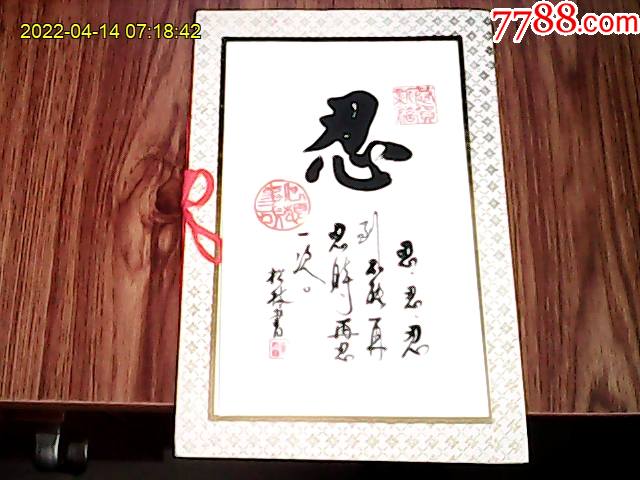 2022-04-14 07:18:42
7788.com
忍
忍·忍·忍
到不能再
忍时再忍
一次。
松林书